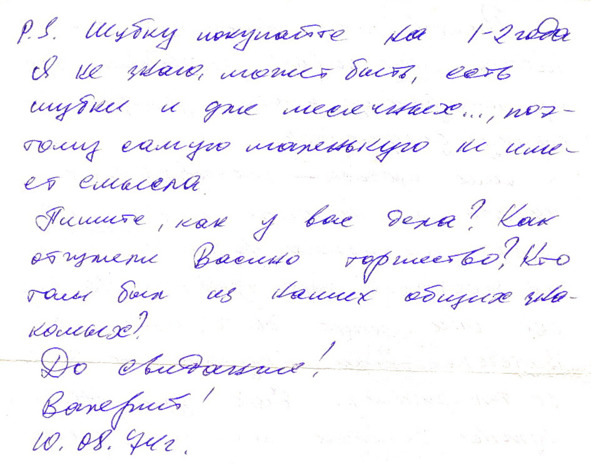 P.S. Шубку покупайте на 1-2 года
Я не знаю, может быть, есть
шубки и для месячных..., поэ-
тому самую маленькую не име-
ет смысла.
Пишите, как у вас дела? Как
отшумело Васино торжество? Кто
там был из наших общих зна-
комых?
До свидания!
Валерий!
10.08.74г.